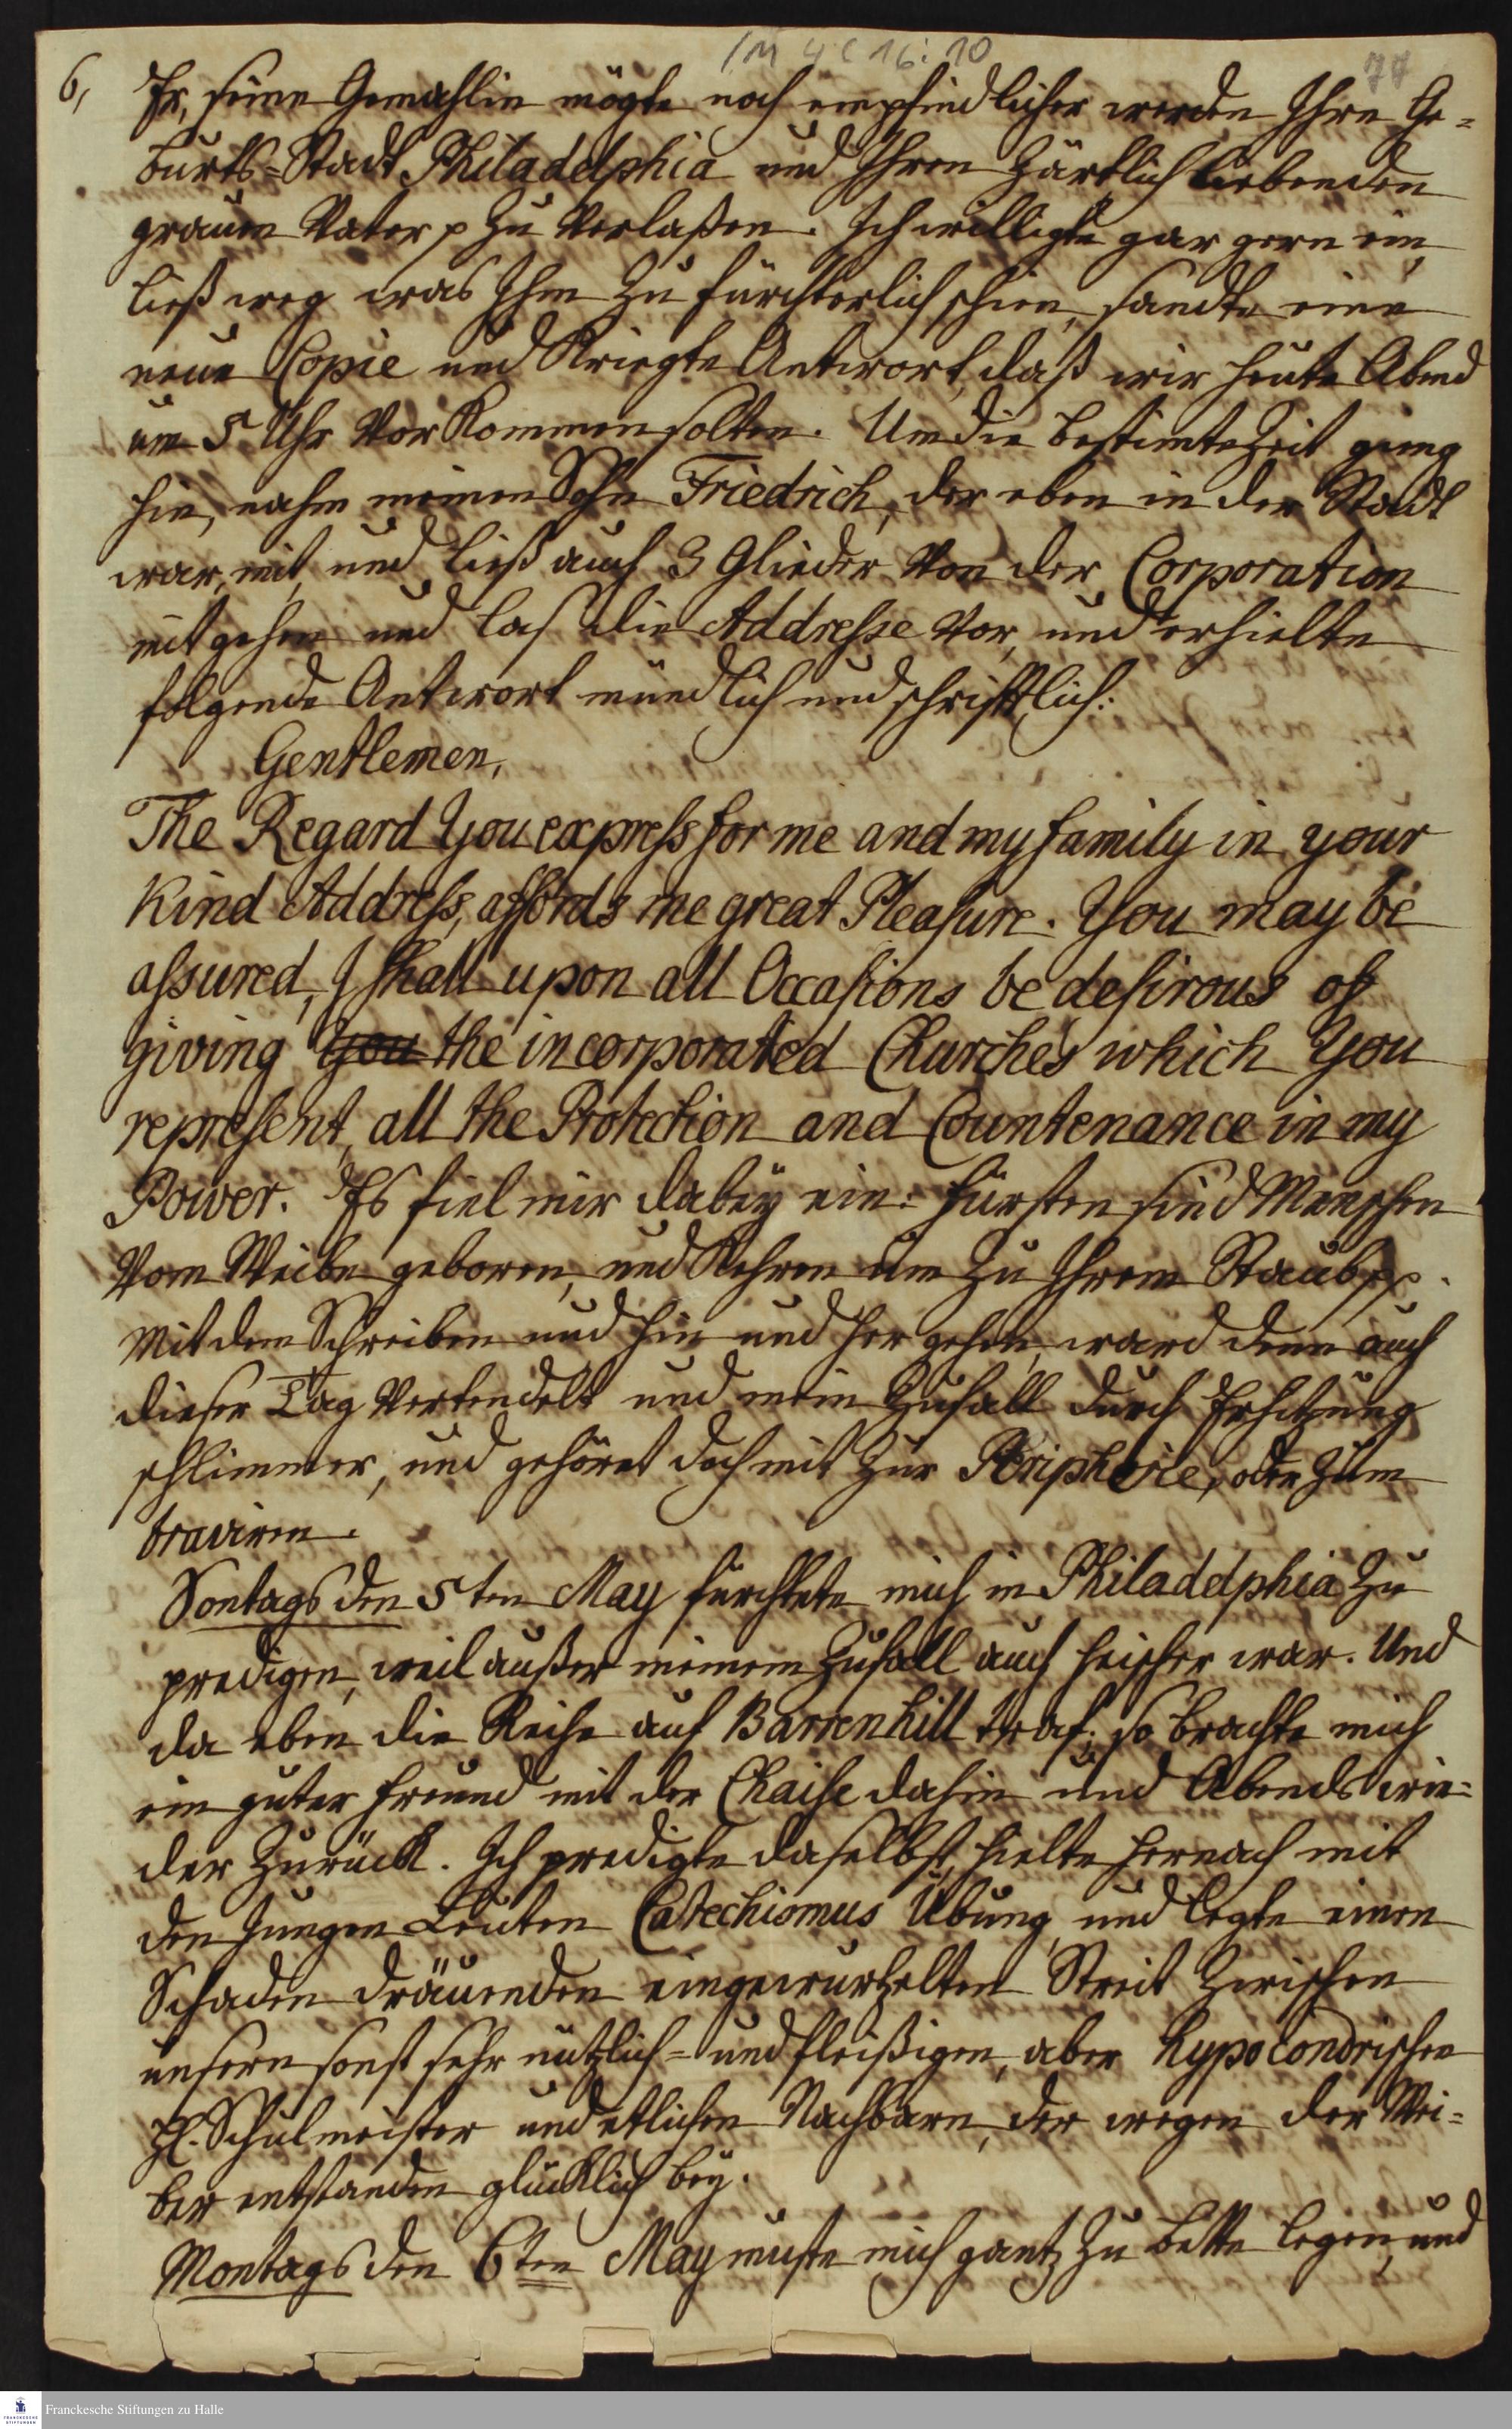 /M 4 C 16 : 10
77
6,
Er, seine Gemahlin mögte noch empfindlicher werden Ihre Ge=
burts=Stadt Philadelphia und Ihren zärtlich liebenden
grauen Vater p zu verlaßen. Ich willigte gar gern ein,
ließ weg was Ihm zu fürchterlich schien, sandte eine
neue Copie und kriegte Antwort, daß wir heute Abend
um 5 Uhr vorkommen solten. Um die bestimte Zeit gieng
hin, nahm meinen Sohn Friedrich, der eben in der Stadt
war, mit, und ließ auch 3 Glieder von der Corporation
mit gehen und las die Addresse vor, und erhielte
folgende Antwort mündlich und schrifftlich:
Gentlemen,
The Regard You express for me and my family in your
Kind Address, affords me great Pleasure. You may be
assured, I shall upon all Occasions be desirous of
giving You the incorporated Churches which You
represent, all the Protection and Countenance in my
Power. Es fiel mir dabey ein: Fürsten sind Menschen
vom Weibe geboren, und kehren um zu Ihrem Staub pp.
Mit dem Schreiben und hin und her gehen, ward denn auch
dieser Tag vertendelt und mein Zufall durch Erhitzung
schlimmer, und gehöret doch mit zur Peripherie, oder zum
braviren.
Sontags den 5ten May furchtete mich in Philadelphia zu
predigen, weil außer meinem Zufall auch heischer war. Und
da eben die Reihe auf Barrenhill traf; so brachte mich
ein guter Freund mit der Chaise dahin und Abends wie=
der zurück. Ich predigte daselbst, hielte hernach mit
den jungen Leuten Catechismus Übung, und legte einen
Schaden dräuenden eingewurtzelten Streit zwischen
unsern sonst sehr nützlich= und fleißigen, aber hypocondrischen
H. Schulmeister und etlichen Nachbarn, der wegen der Wei=
ber entstanden glücklich bey.
Montags den 6ten May muste mich gantz zu Bette legen, und
Franckesche Stiftungen zu Halle